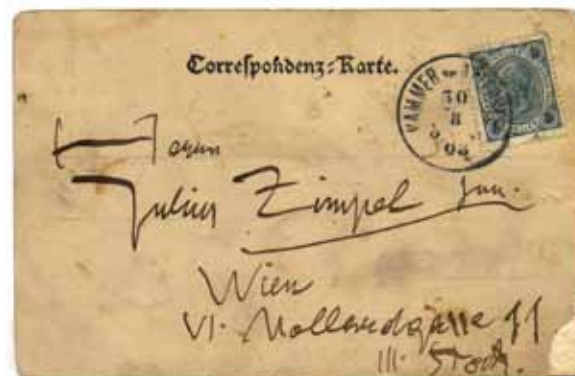 Correſpondenz-Karte.
KAMMER
30
8
03
Herrn
Julius Zimpel jun.
Wien
VI. Mollardgasse
III. Stock.